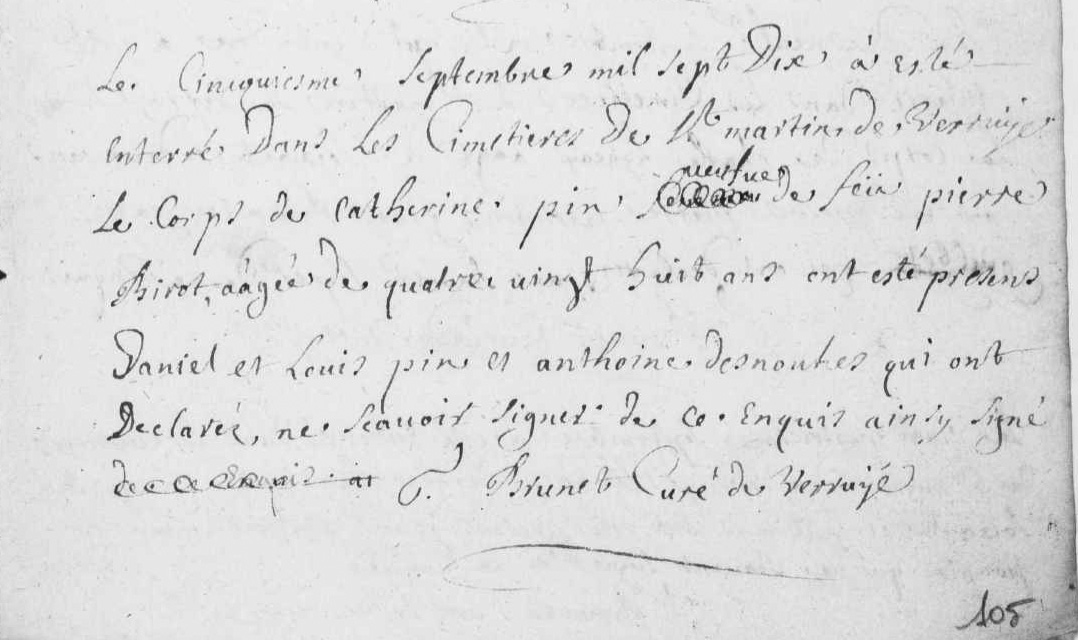 Le Cincquiesme Septembre mil sept Dix à esté
enterré Dans Les Cimetieres De St martin de Verruÿe
veufve
Le Corps de Catherine pin de feü pierre
Birot, aâgée de quatre vingt huit ans ont esté presens
Daniel et Louis pin et anthoine desnouhes qui ont
Declaréz ne scavoir signer de ce Enquis ainsy signé
de ce Enquis
G. Brunet Curé de Verruÿe
105